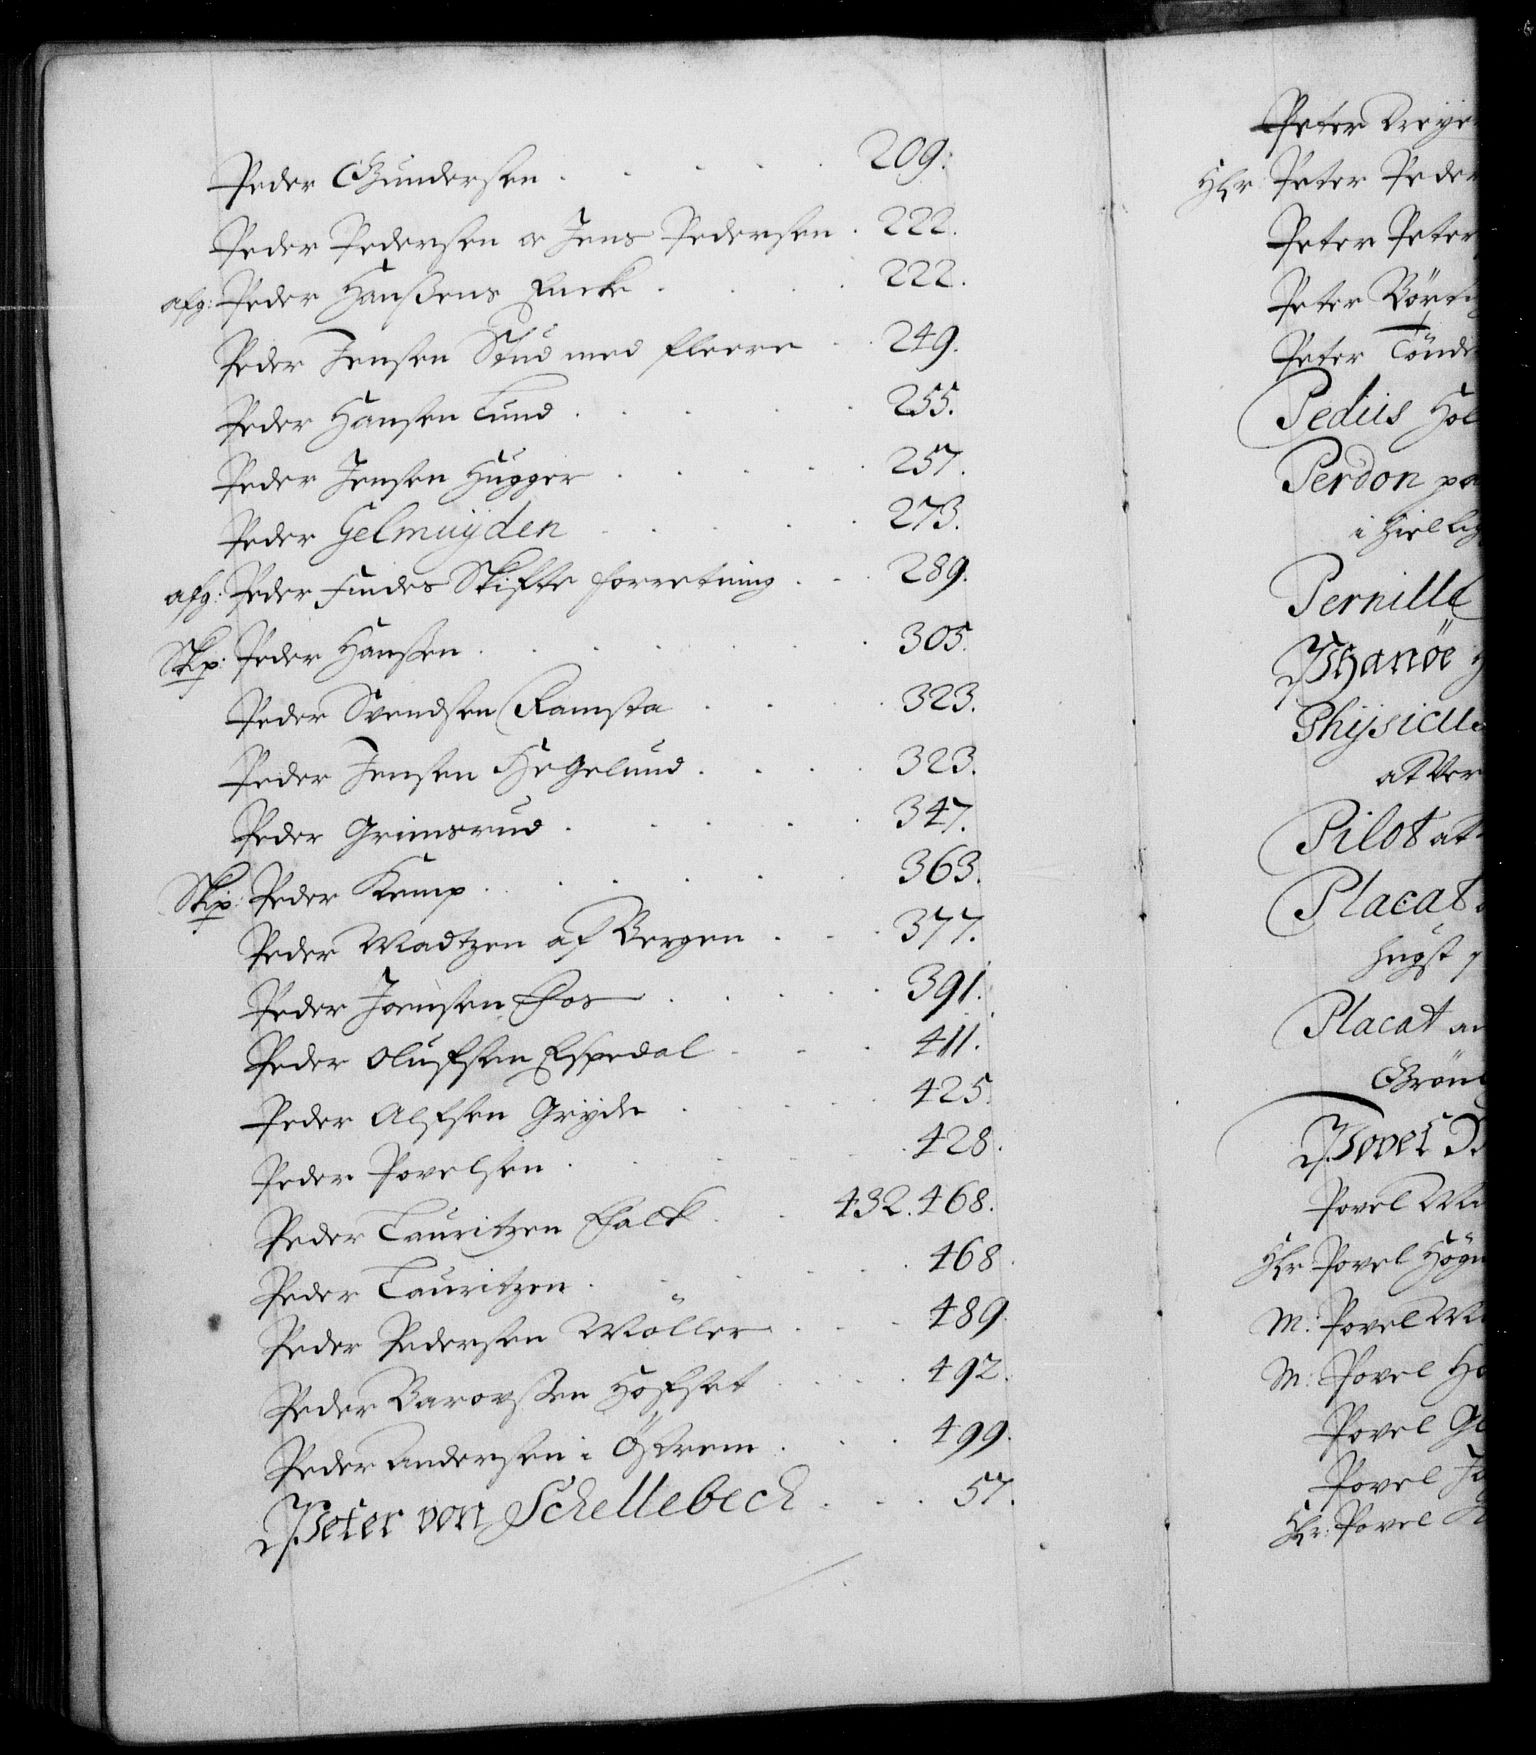 Peder Gundersen . . . . . 209.
Peder Pedersen oc Jens Pedersen . 222.
afg: Peder Hanßens Encke . . . . 222.
Peder Jensen Stud med fleere . . 249.
Peder Hansen Lund . . . . . 255.
Peder Jensen Hugger . . . . . 257.
Peder Gelmuyden . . . . . 273.
afg: Peder Findes Skifte forretning . . . 289.
Skip: Peder Hanßen . . . . . . . 305.
Peder Svendsen Ramsta . . . . 323.
Peder Jensen Hegelund . . . . 323.
Peder Grimsrud . . . . . . 347.
Skip: Peder Kemp . . . . . . . 363.
Peder Madtzen af Bergen . . . 377.
Peder Joensen Foss . . . . . 391.
Peder Olufsen Espedal . . . 411.
Peder Alfsen Gryde . . . . 425.
Peder Povelsen . . . . . . 428.
Peder Lauritzen Falck . . 432. 468.
Peder Lauritzen . . . . . . 468.
Peder Pedersen Möller . . . 489.
Peder Hofset . . . 492.
Peder Andersen i Östrem . . . 499.
Peter von Schellebeck . . . 57.
Peter
Hr: Peter Peder
Peter Peter
Peter
Peter Tönde
Pediis Hol
Perdon pa
i hiel
Pernille
Phanöe
Physicu
at ver
Pilot at
Placat
hugst
Placat an
Grönl
Povel
Povel
Hr Povel Högn
M: Povel
M: Povel
Povel
Povel
Hr: Povel